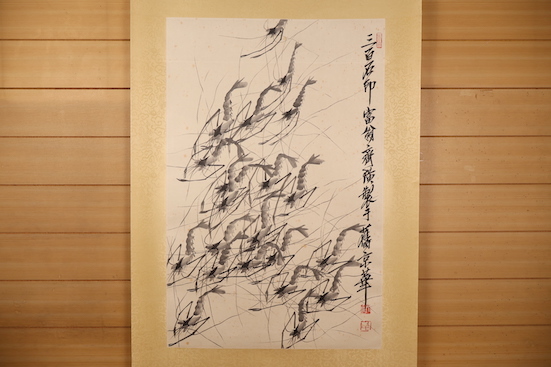 三百石印富翁齊璜製于舊京華